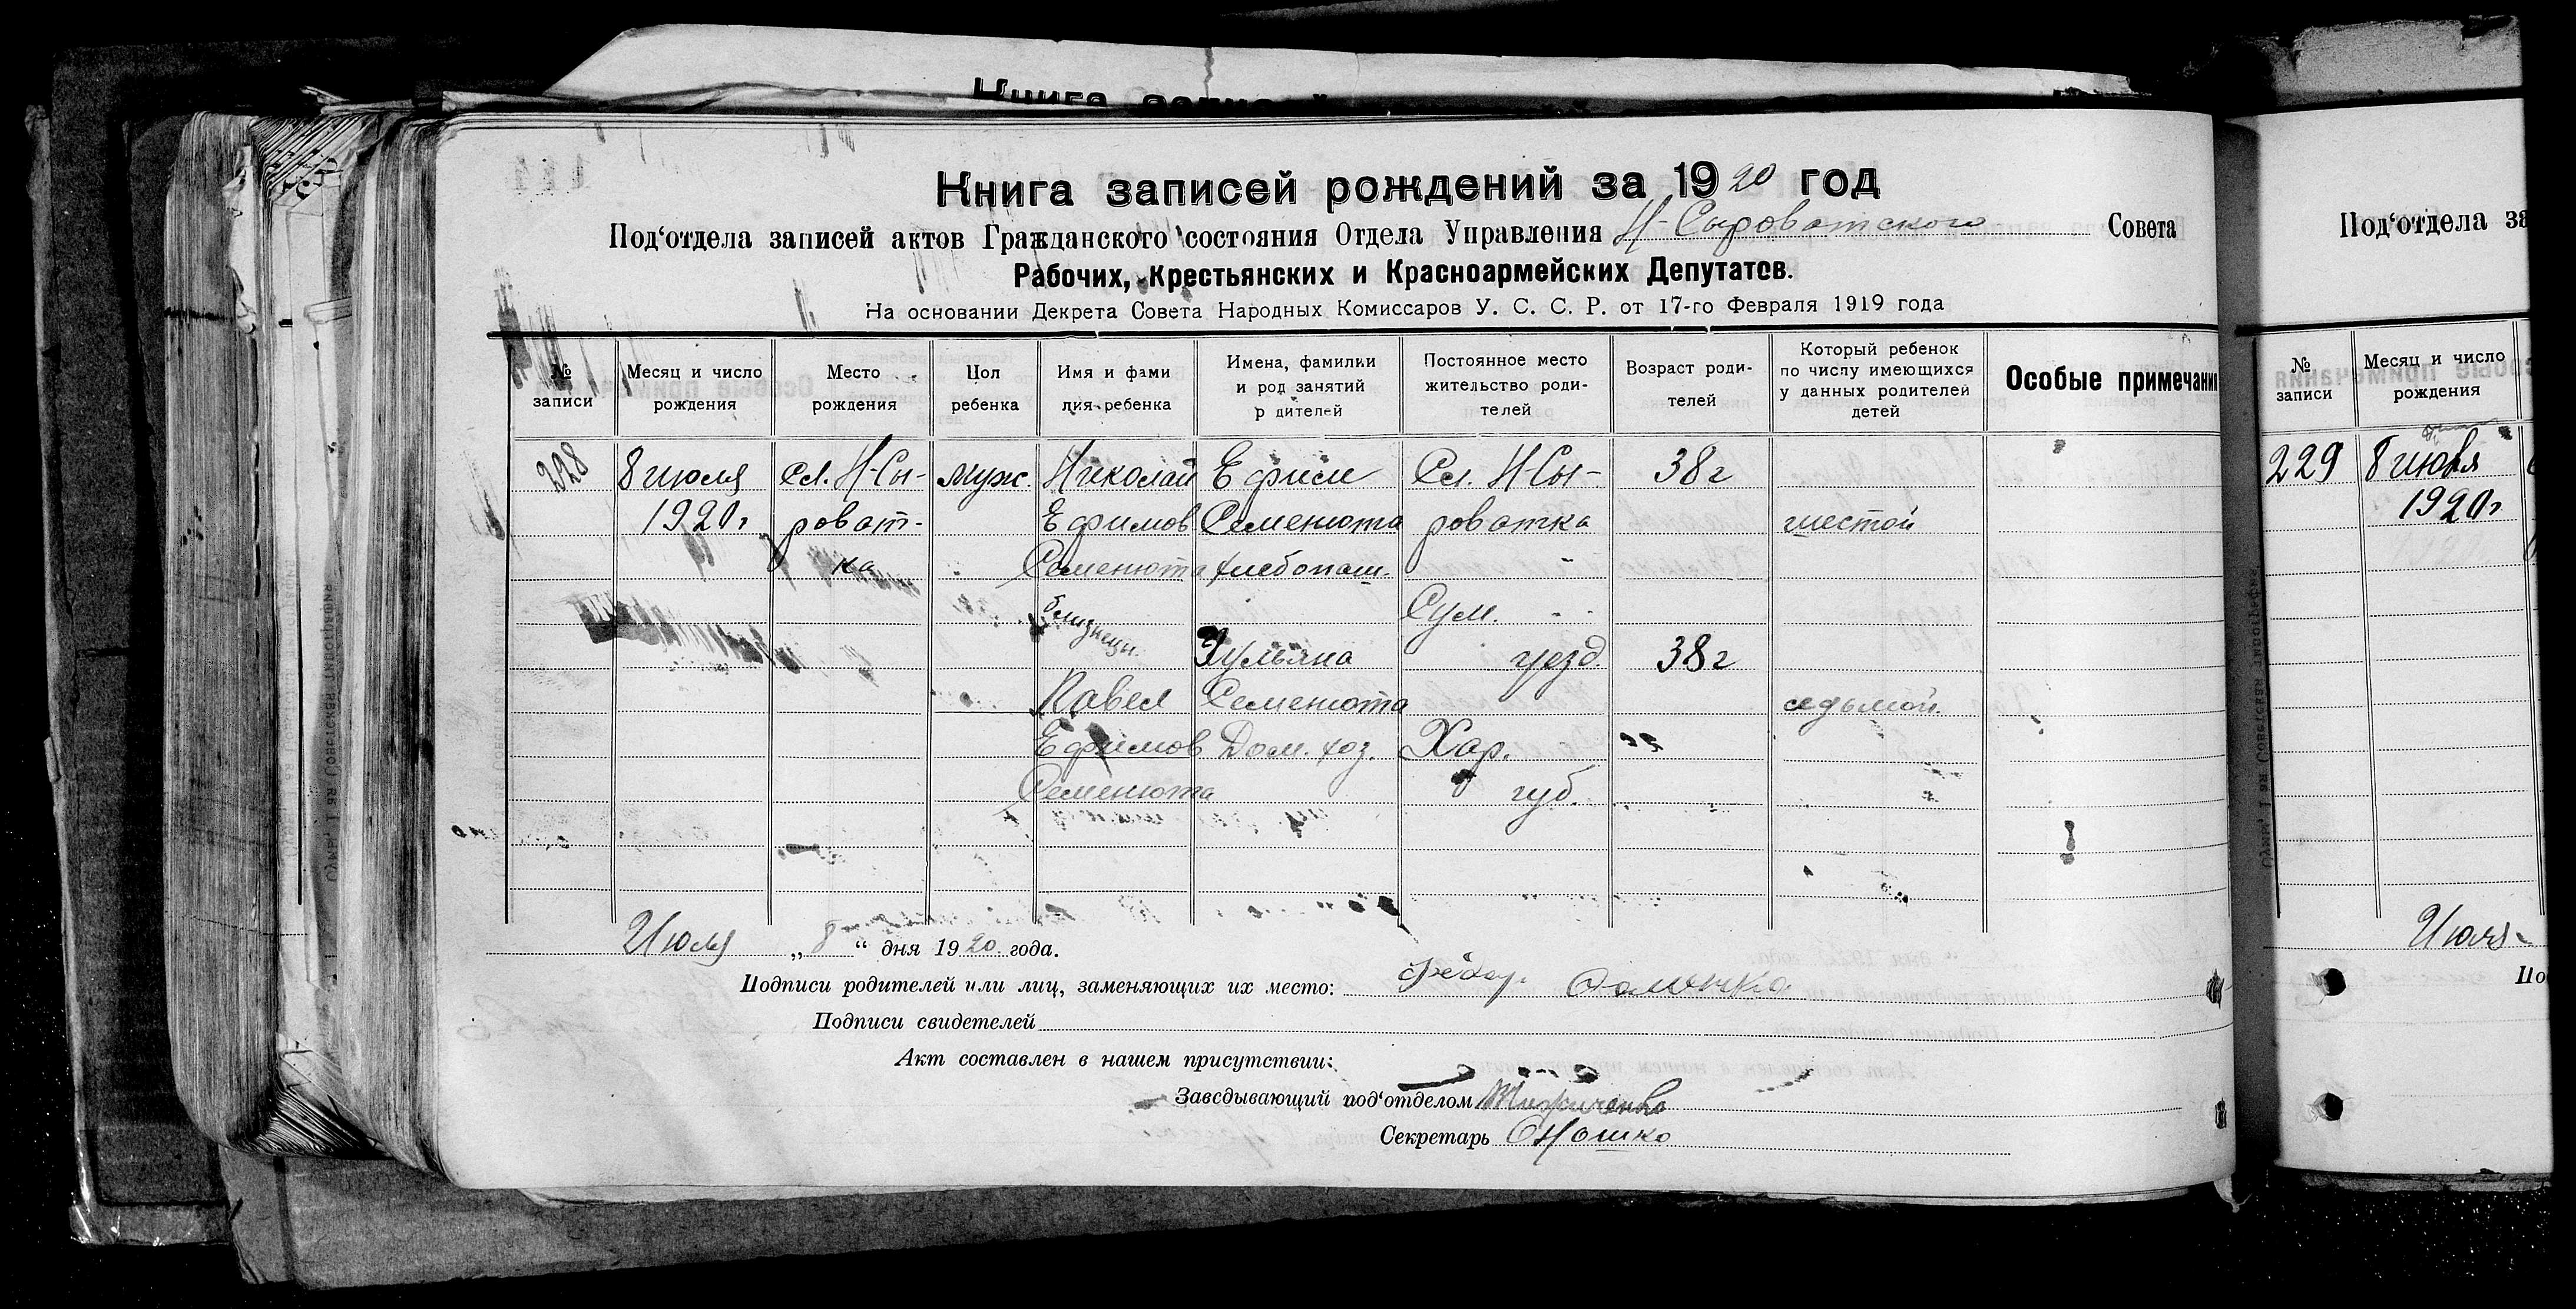 Книга записей рождений за 1920 год
Под'отдела записей актов Гражданского состояния Отдела Управления Н-Сыроватского Совета
Рабочих, Крестьянских и Красноармейских Депутатов.
На основании Декрета Совета Народных Комиссаров У. С. С. Р. от 17-го Февраля 1919 года
№ записи
Месяц и число рождения
Место рождения
Пол ребенка
Имя и фамилия ребенка
Имена, фамилии и род занятий р дителей
Постоянное место жительство родителей
Возраст родителей
Который ребенок по числу имеющихся у данных родителей детей
Особые примечани
228 8 июля Сл. Н-Сы- муж. Николай Ефим Сл. Н-Сы- 38 г
1920 г роват- Ефимов Семенюта роватка шестой
ка Семенюта хлебопаш.
близнецы Сум.
Ульяна уезд. 38 г
Павел Семенюта седьмой.
Ефимов Дом. хоз. Хар.
Семенюта губ.
Июля „ 8 “ дня 1920 года.
Подписи родителей или лиц, заменяющих их место:
Подписи свидетелей
Акт составлен в нашем присутствии:
Заведывающий под'отделом
Секретарь
Под'отдела за
№ записи
Месяц и число рождения
229 8 июля
1920 г
Июля
По